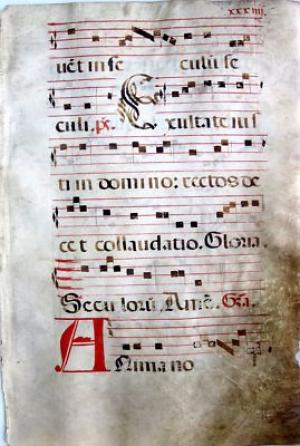 xxxiiij
uet in se culū se
culi. ps. Exultate ius
ti in domino: rectos de
cet collaudatio. Gloria.
Seculorū. Amē. Gra.
Anima no